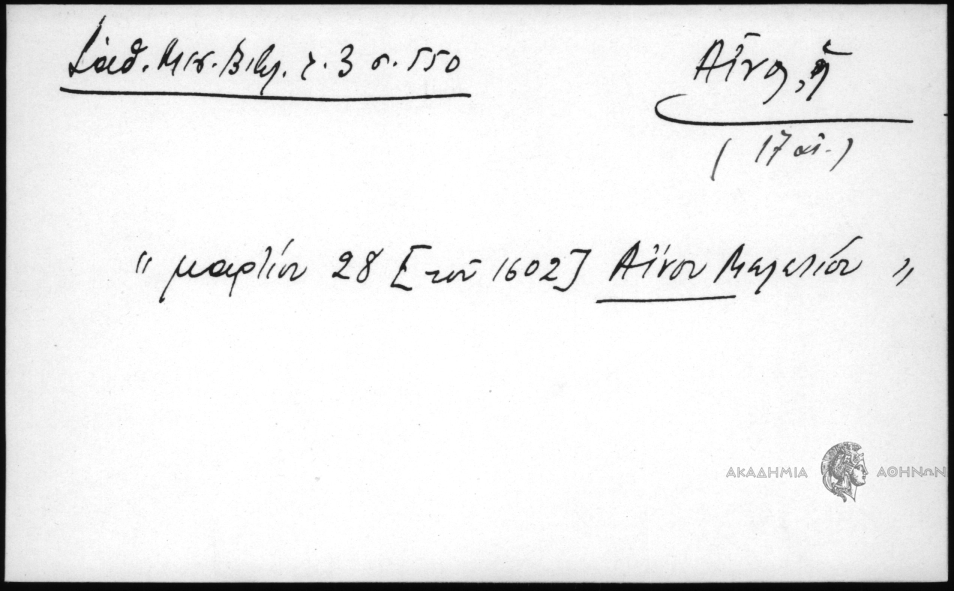 Σάθ. Μεσ. Βιβλ. τ. 3 σ. 550
Αἶνος, ἡ
(17 αἰ.)
"μαρτίου 28 [τοῦ 1602] Αἴνου Μελετίου"
ΑΚΑΔΗΜΙΑ ΑΘΗΝΩΝ